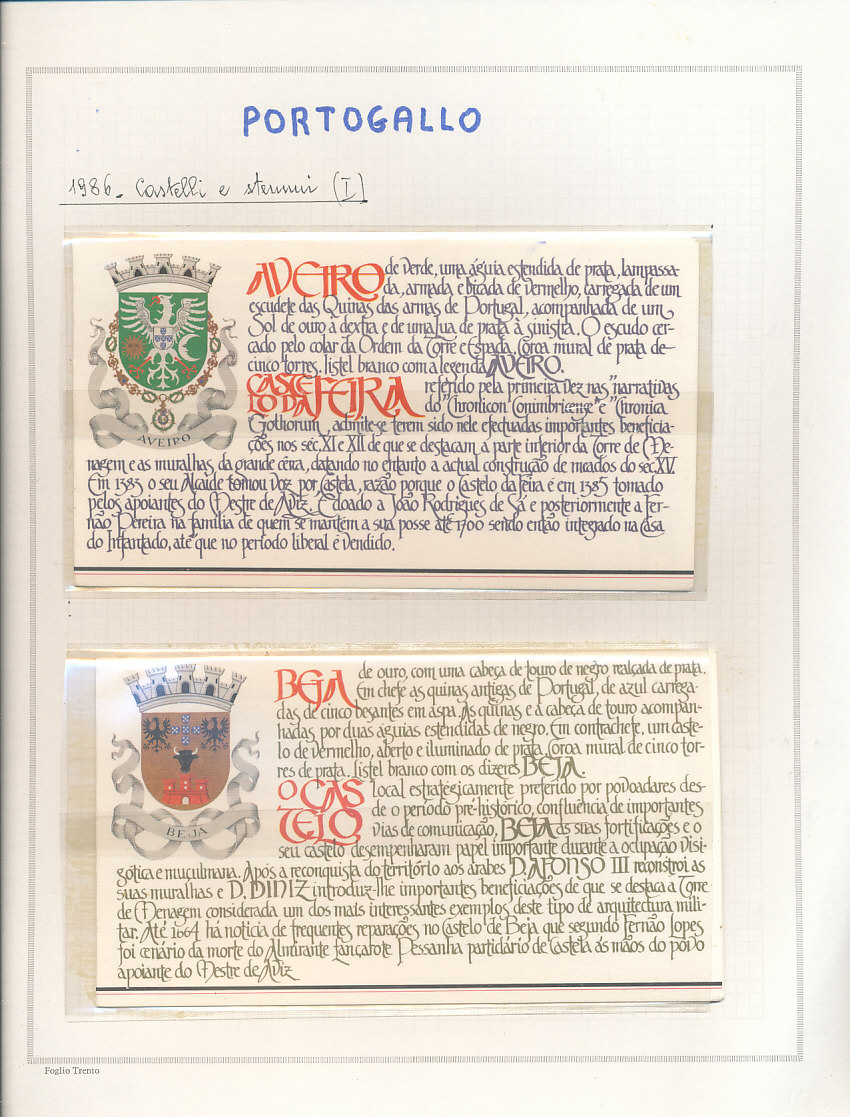 PORTOGALLO
1986. Castelli e stemmi (I)
AVEIRO de verde, uma águia estendida de prata, lampassa-
da, armada e bicada de vermelho, carregada de um
escudete das Quinas das armas de Portugal, acompanhada de um
Sol de ouro à dextra e de uma lua de prata à sinistra. O escudo cer-
cado pelo colar da Ordem da Torre e Espada. Coroa mural de prata de
cinco torres. listel branco com a legenda AVEIRO.
CASTE
LO DA FEIRA referido pela primeira vez nas "narrativas
do "Chronicon Conimbricense" e "Chronica
Gothorum, admite-se terem sido nele efectuadas importantes beneficia-
ções nos séc. XI e XII de que se destacam a parte inferior da Torre de Me-
nagem e as muralhas da grande cêrca, datando no entanto a actual construção de meados do séc. XV.
Em 1383 o seu Alcaide tomou voz por Castela, razão porque o Castelo da feira é em 1385 tomado
pelos apoiantes do Mestre de Aviz. É doado a João Rodrigues de Sá e posteriormente a Fer-
não Pereira na família de quem se mantem a sua posse até 1700 sendo então integrado na Casa
do Infantado, até que no período liberal é vendido.
AVEIRO
BEJA de ouro, com uma cabeça de touro de negro realçada de prata.
Em chefe as quinas antigas de Portugal, de azul carrega-
das de cinco besantes em aspa. As quinas e a cabeça de touro acompan-
hadas por duas águias estendidas de negro. Em contrachefe, um caste-
lo de vermelho, aberto e iluminado de prata. Coroa mural de cinco tor-
res de prata. listel branco com os dizeres BEJA.
O CAS
TELO local estrategicamente preferido por povoadores des-
de o período pré-histórico, confluência de importantes
vias de comunicação, BEJA as suas fortificações e o
seu castelo desempenharam papel importante durante a ocupação visi-
gótica e muçulmana. Após a reconquista do território aos árabes D. AFONSO III reconstroi as
suas muralhas e D. DINIZ introduz-lhe importantes beneficiações de que se destaca a Torre
de Menagem considerada um dos mais interessantes exemplos deste tipo de arquitectura mili-
tar. Até 1664 há noticia de frequentes reparações no Castelo de Beja que segundo Fernão Lopes
foi cenário da morte do Almirante Lançarote Pessanha partidário de Castela ás mãos do povo
apoiante do Mestre de Aviz
BEJA
Foglio Trento